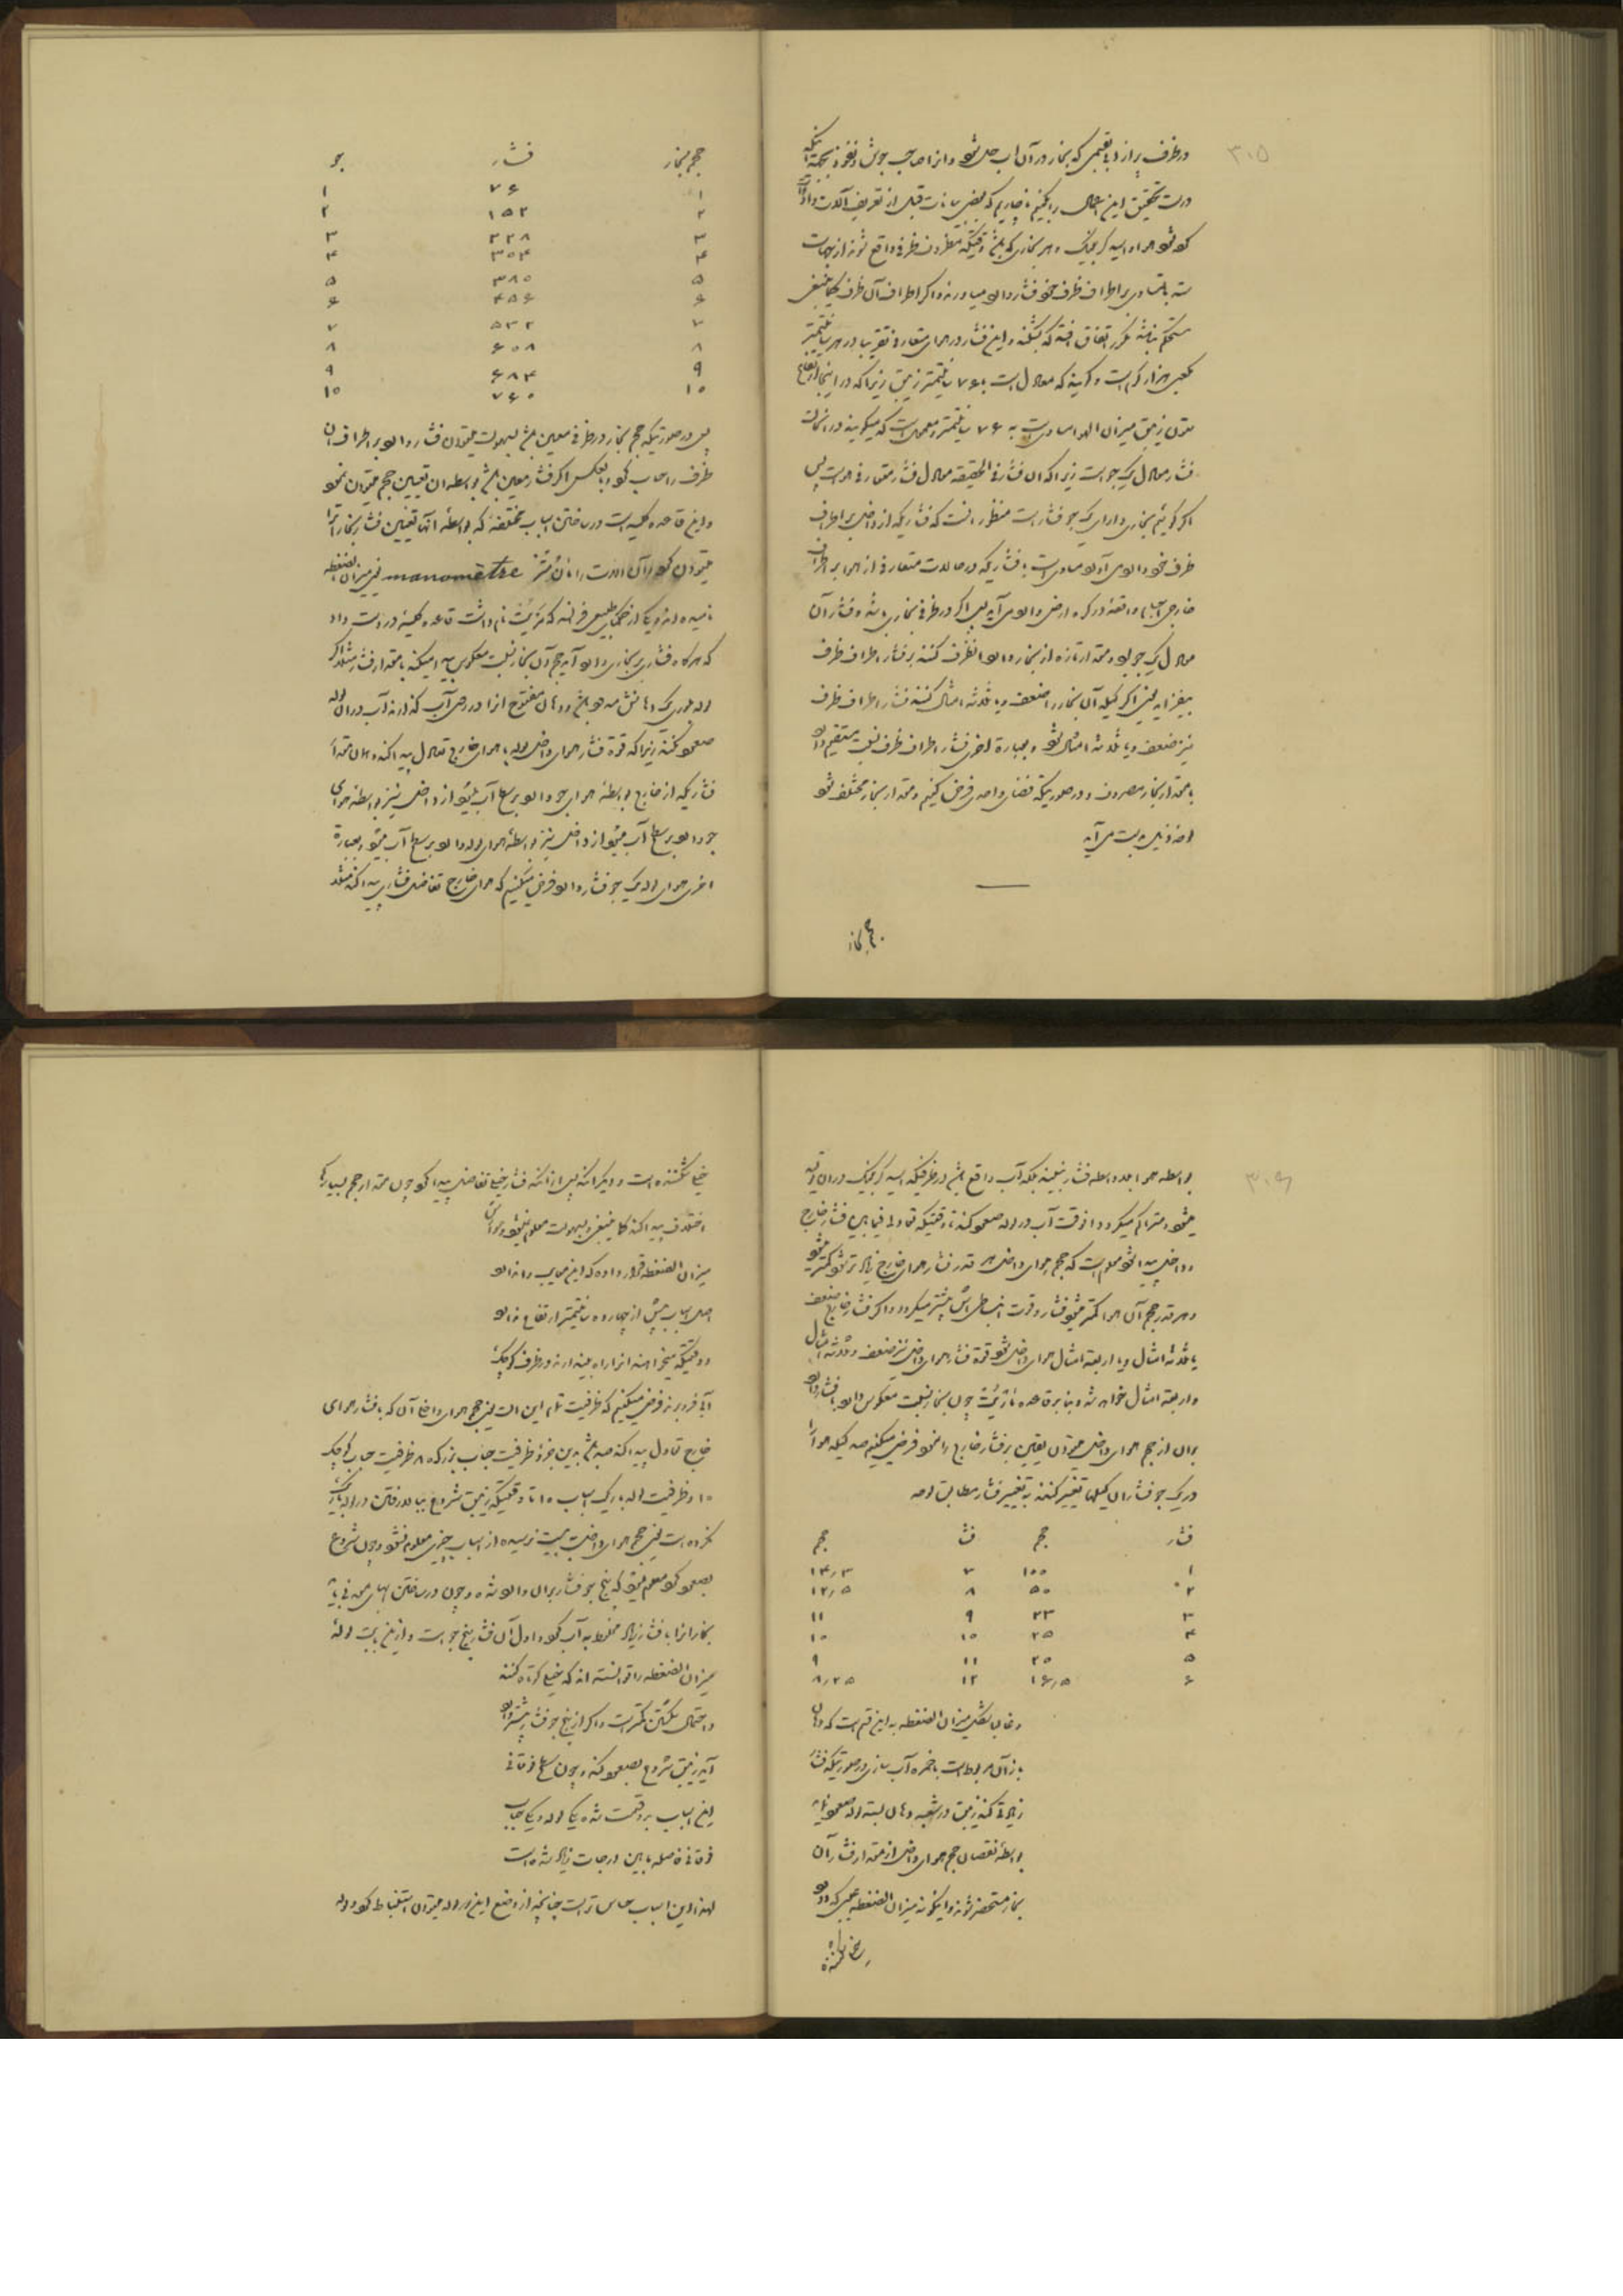 ۳۰۵
در ظرف پر از آبی بقسمی که بخار در آن آب حل شود و از صاحب جوش و نفوذ بجهة اینکه
درست تحقیق این اعمال را بکنیم ناچاریم که بعضی بیانات قبل از تعریف آلات و ادوات
کنود هوا و اسید کربنیک و هر بخاری که باشد وقتیکه مظروف ظرفی واقع شوند از جهات
سته بالتساوی بر اطراف ظرف خود فشار وارد میاورند و اگر اطراف آن ظرف کما ینبغی
مستحکم نباشد مکرر اتفاق افتد که بشکند و این فشار در هوای متعارف تقریبا در هر سانتیمتر
مکعبی هزار گرم است و گویند که معادل است با ۷۶ سانتیمتر زیبق زیرا که در اینجا ارتفاع
ستون زیبق میزان الهوا مساویست به ۷۶ سانتیمتر و معمول است که میگویند در اینحالت
فشار معادل یک جو است زیرا که آن فشار فی الحقیقه معادل فشار متعارفی هواست پس
اگر گوئیم بخاری دارای یک جو فشار است منظور آنست که فشاریکه از داخل بر اطراف
ظرف خود وارد می آورد مساوی است با فشاریکه در حالت متعارفی از هوا بر اطراف
خارجی اجسام واقعه در کره ارض وارد می آید پس اگر در ظرفی بخاری باشد و فشار آن
معادل یک جو بود و مقدار تازه از بخار وارد آنظرف کنند بر فشار اطراف ظرف
بیفزاید یعنی اگر کیله آن بخار را ضعف و یا ثلثه امثال کنند فشار اطراف ظرف
نیز ضعف و یا ثلثه امثال شود و بعبارة اخری فشار اطراف ظرف نسبت مستقیم دارد
با مقدار بخار مصروف و در صورتیکه فضای واحدی فرض کنیم و مقدار بخار مختلف شود
احد ذیل بدست می آید
حجم بخار
حجم بخار فشار جو
۱ ۷۶ ۱
۲ ۱۵۲ ۲
۳ ۲۲۸ ۳
۴ ۳۰۴ ۴
۵ ۳۸۰ ۵
۶ ۴۵۶ ۶
۷ ۵۳۲ ۷
۸ ۶۰۸ ۸
۹ ۶۸۴ ۹
۱۰ ۷۶۰ ۱۰
پس در صورتیکه حجم بخار در ظرفی معین باشد بسهولت میتوان فشار وارد بر اطراف آن
ظرف را حساب کرد و بالعکس اگر فشار معین باشد بواسطه آن تعیین حجم میتوان نمود
و این قاعده کلیه است در ساختن اسباب مختلفه که بواسطه آنها تعیین فشار بخار را
میتوان کرد و آن آلات را مانمتر manomètre یعنی میزان الضغطه
نامیده اند و یکی از حکمای طبیعی فرانسه که مریت نام داشت قاعده کلیه در دست داد
که هر گاه فشاری بر بخاری وارد آید حجم آن بخار نسبت معکوس پیدا میکند با مقدار فشار مثلا اگر
لوله را که یک دهانش مسدود باشد و دهان مفتوح آنرا در روی آب گذارند آب در آن لوله
صعود نکند زیرا که قوة فشار هوای داخلی لوله با هوای خارج تعادل پیدا کند و همان مقدار
فشاریکه از خارج بواسطه هوای جو وارد بر سطح آب میشود از داخل نیز بواسطه هوای
جو وارد بر سطح آب میشود از داخل نیز بواسطه هوای لوله وارد بر سطح آب میشود و بعبارة
اخری هوای لوله یک جو فشار دارد فرض میکنیم که هوای خارج تفاضل فشاری پیدا کند مثلا
۳۰۶
بواسطه هوا بلاواسطه فشار نبیند بلکه آب واقع باشد در ظرفیکه اسید کربنیک در آن تولید
میشود و متراکم میگردد آنوقت آب در لوله صعود کند تا وقتیکه تعادل فیمابین فشار خارج
و داخل پیدا شود معلوم است که حجم هوای داخل هر قدر فشار هوای خارج زیادتر شود کمتر میشود
و هر قدر حجم آن هوا کمتر میشود فشار و قوت انبساطی اش بیشتر میگردد و اگر فشار خارج ضعف
یا ثلثه امثال و یا اربعه امثال هوای داخل شود قوة فشار هوای داخل نیز ضعف و ثلثه امثال
و اربعه امثال خواهد شد و بنا بر قاعده ماریت چون بخار نسبت معکوس دارد با فشار وارد
بر آن از حجم هوای داخل میتوان یقین بر فشار خارج را نمود فرض میکنیم صد کیله هوا را
در یک جو فشار آن کیلها تغییر کنند به تغییر فشار مطابق لوحه
فشار حجم فشار حجم
۱ ۱۰۰ ۷ ۱۴٫۳
۲ ۵۰ ۸ ۱۲٫۵
۳ ۳۳ ۹ ۱۱
۴ ۲۵ ۱۰ ۱۰
۵ ۲۰ ۱۱ ۹
۶ ۱۶٫۵ ۱۲ ۸٫۲۵
و غالب شکل میزان الضغطه به این قسم است که دهان
باز آن مربوط است با خمره آب سازی در صورتیکه فشار
زیادتی کند زیبق در شعبه دهان بسته لوله صعود نماید
بواسطه نقصان حجم هوای داخل از مقدار فشار آن
بخار مستحضر شوند و اینگونه میزان الضغطه عیبی که دارد
خیلی شکننده است و دیگر آنکه پس از آنکه فشار خیلی تفاضل پیدا کرد چون مقدار حجم بسیار کم
اختلاف پیدا کند کما ینبغی و بسهولت معلوم نمیشود
میزان الضغطه قرار داده که این معایب را ندارد
اصل اسباب بیش از چهارده سانتیمتر ارتفاع ندارد
و وقتیکه میخواهند آنرا راه بیندازند در ظرف کوچک
آبی فرو برند فرض میکنیم که ظرفیت تمام این آلت یعنی حجم هوای داخل آن که با فشار هوای
خارج تعادل پیدا کند صد باشد بدین نحو ظرفیت حباب بزرگ ۸۰ ظرفیت حباب کوچک
۱۰ و ظرفیت لوله باریک اسباب ۱۰ تا وقتیکه زیبق شروع ببالا رفتن در لوله باریک
نکرده است یعنی حجم هوای داخل به بیست نرسیده از اسباب چیزی معلوم نشود و چون شروع
بصعود کرد معلوم میشود که پنج جو فشار بر آن وارد شده و چون در ساختن آبهای معدنی باید
بخار آنرا با فشار زیاد مخلوط به آب کرد و اول آن فشار پنج جو است و ازین بابت لوله
میزان الضغطه را توانسته اند که خیلی کوتاه کنند
و احتمال شکستن کمتر است و اگر از پنج جو فشار بیشتر وارد
آید زیبق شروع بصعود کند و چون سطح فوقانی
این اسباب بر دو قسمت شده یکی لوله و یکی حباب
فوقانی فاصله مابین درجات زیاد شده است
لهذا این اسباب حساس تر است چنانچه از وضع این لوله میتوان استنباط کرد و لوله